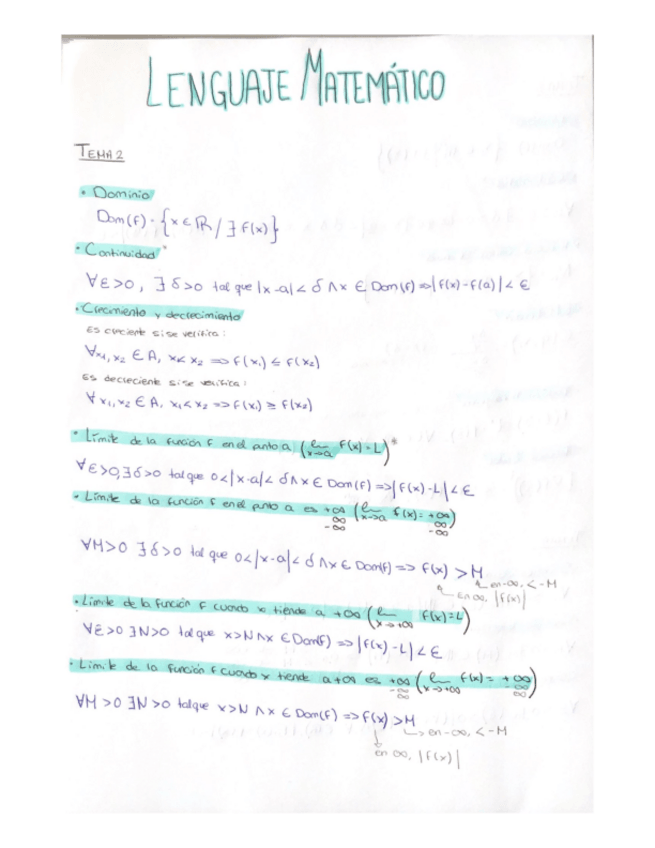 LENGUAJE MATEMÁTICO
TEMA 2
• Dominio
Dom(f) = {x ∈ ℝ / ∃ f(x)}
• Continuidad
∀ε>0, ∃ δ>0 tal que |x-a|< δ ∧ x ∈ Dom(f) => |f(x)-f(a)| < ε
• Crecimiento y decrecimiento
Es creciente si se verifica:
∀x₁, x₂ ∈ A, x₁< x₂ => f(x₁) ≤ f(x₂)
Es decreciente si se verifica:
∀ x₁, x₂ ∈ A, x₁< x₂ => f(x₁) ≥ f(x₂)
• Límite de la función f en el punto a, (lim x→a f(x) = L)*
∀ε>0, ∃δ>0 tal que 0<|x-a|< δ ∧ x ∈ Dom(f) => |f(x)-L| < ε
• Límite de la función f en el punto a es +∞ (lim x→a f(x) = +∞)
∞ ∞
-∞ -∞
∀M>0 ∃δ>0 tal que 0<|x-a|< δ ∧ x ∈ Dom(f) => f(x) > M
en -∞, < -M
En ∞, |f(x)|
• Límite de la función f cuando x tiende a +∞ (lim x→+∞ f(x) = L)
∀ε>0 ∃N>0 tal que x>N ∧ x ∈ Dom(f) => |f(x)-L| < ε
• Límite de la función f cuando x tiende a +∞ es +∞ (lim x→+∞ f(x) = +∞)
-∞ ∞
-∞ -∞
∀M>0 ∃N>0 tal que x>N ∧ x ∈ Dom(f) => f(x) > M
en -∞, < -M
en ∞, |f(x)|